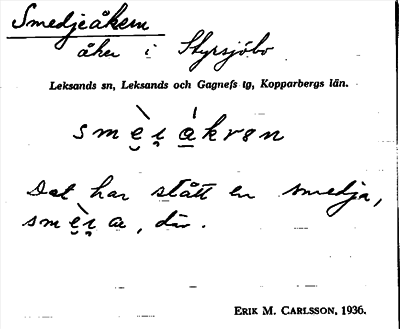 Smedjeåkern
åker i Styrsjöbo
Leksands sn, Leksands och Gagnefs tg, Kopparbergs län.
Det har stått en smedja,
där.
ERIK M. CARLSSON, 1936.